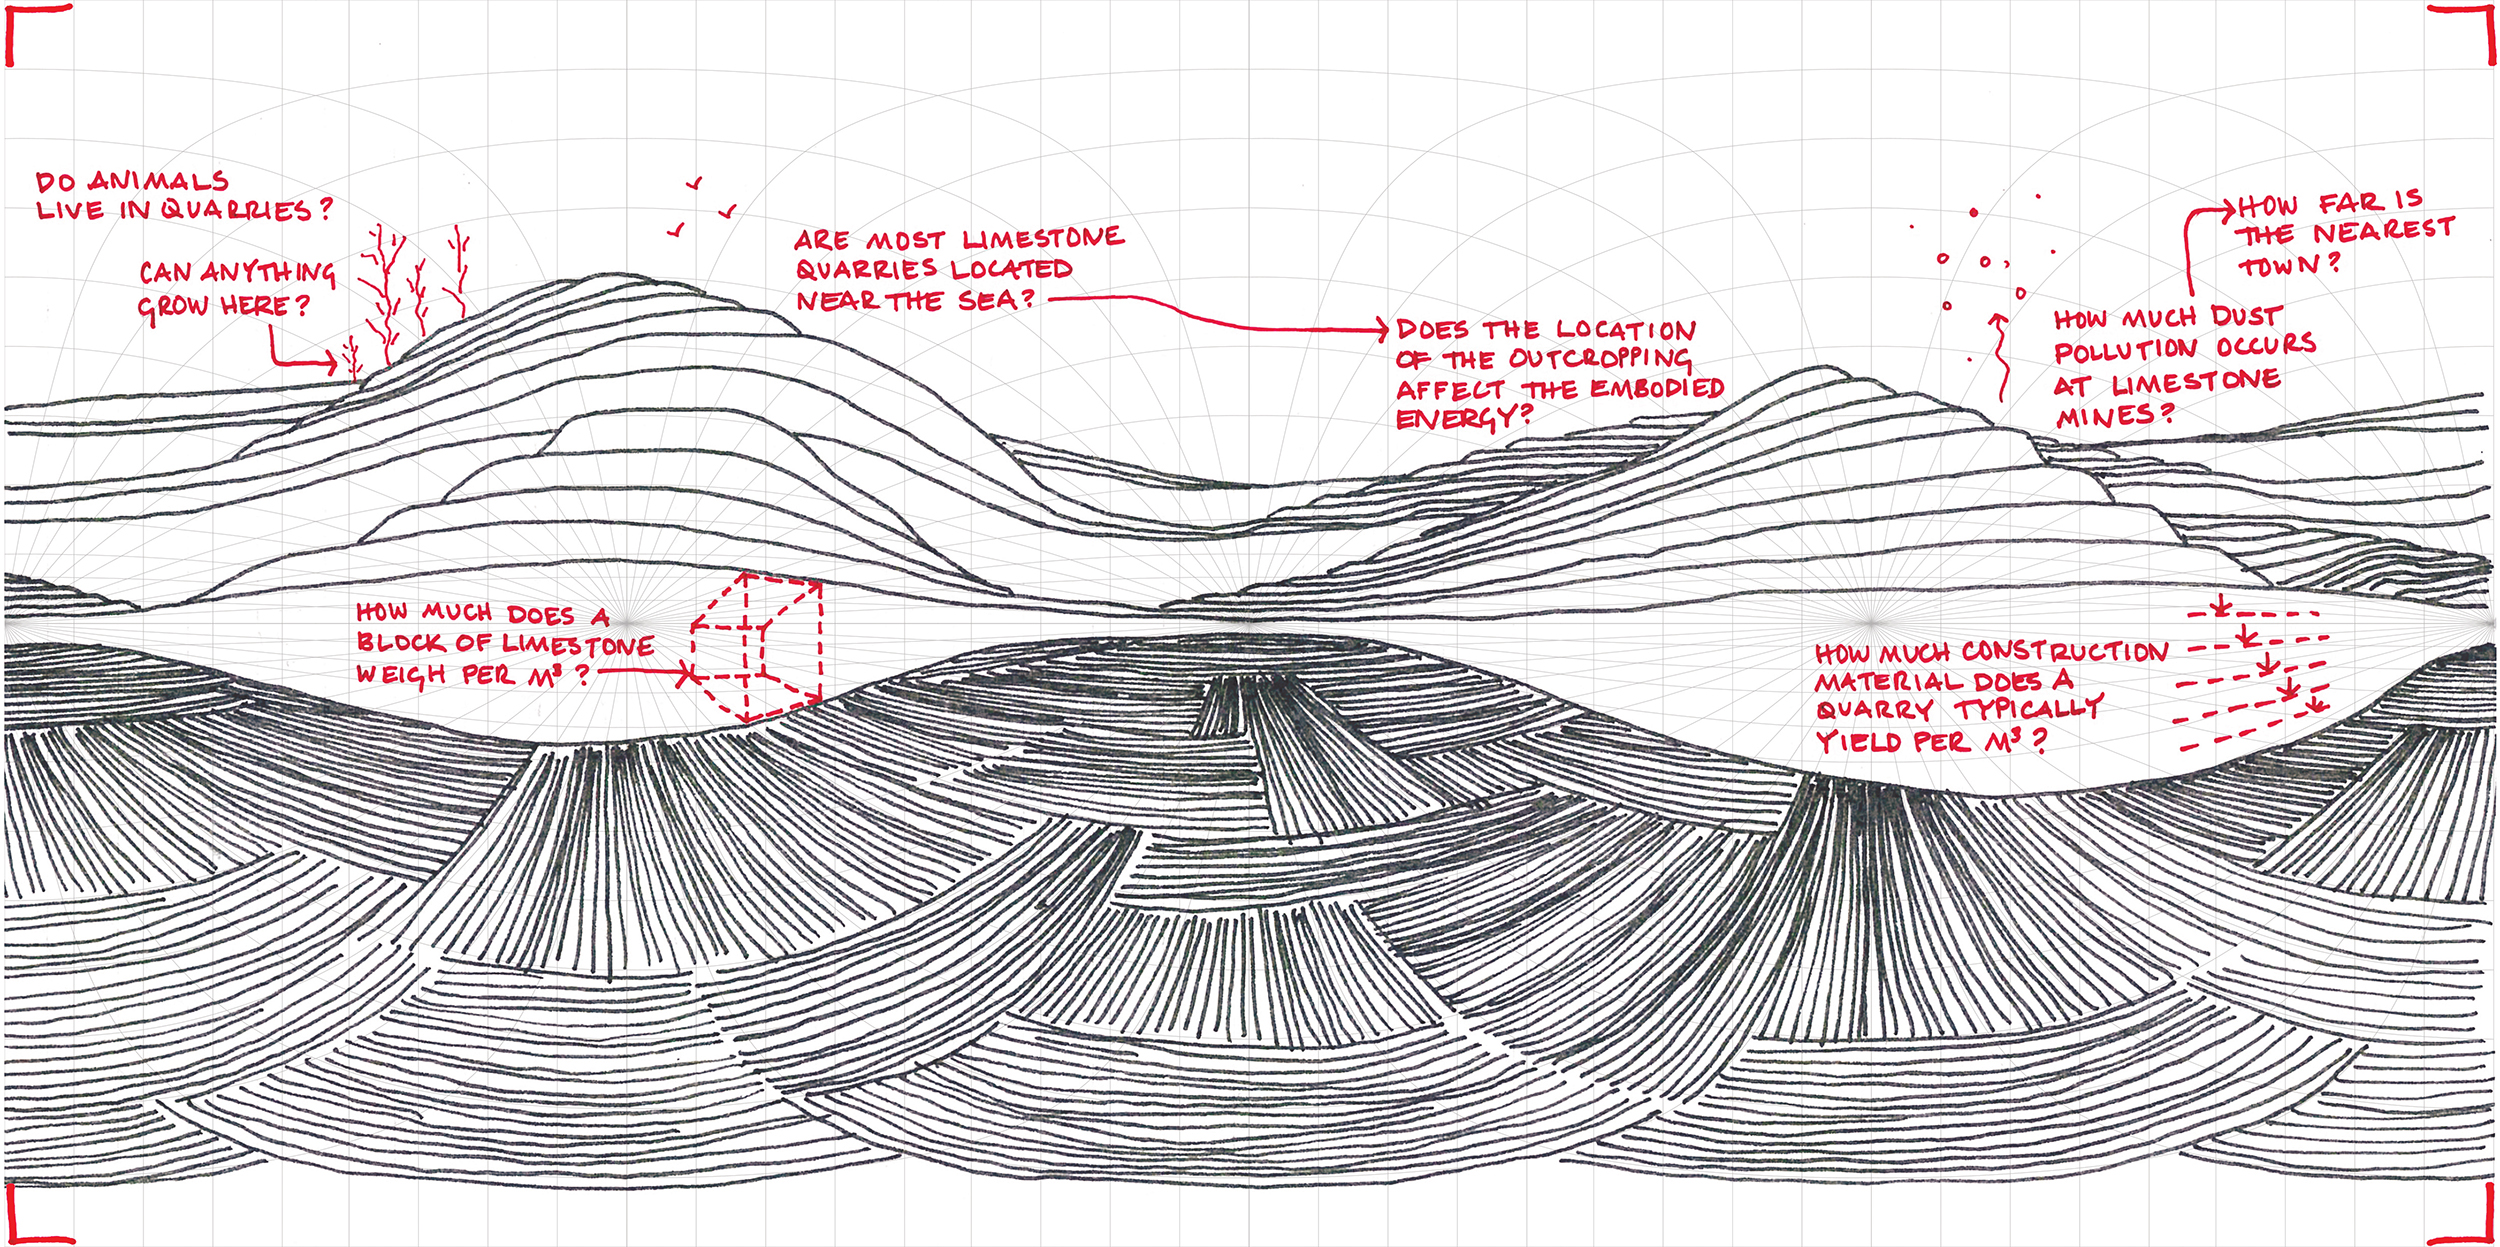 DO ANIMALS
LIVE IN QUARRIES?
CAN ANYTHING
GROW HERE?
ARE MOST LIMESTONE
QUARRIES LOCATED
NEAR THE SEA?
DOES THE LOCATION
OF THE OUTCROPPING
AFFECT THE EMBODIED
ENERGY?
HOW FAR IS
THE NEAREST
TOWN?
HOW MUCH DUST
POLLUTION OCCURS
AT LIMESTONE
MINES?
HOW MUCH DOES A
BLOCK OF LIMESTONE
WEIGH PER M³?
HOW MUCH CONSTRUCTION
MATERIAL DOES A
QUARRY TYPICALLY
YIELD PER M³?